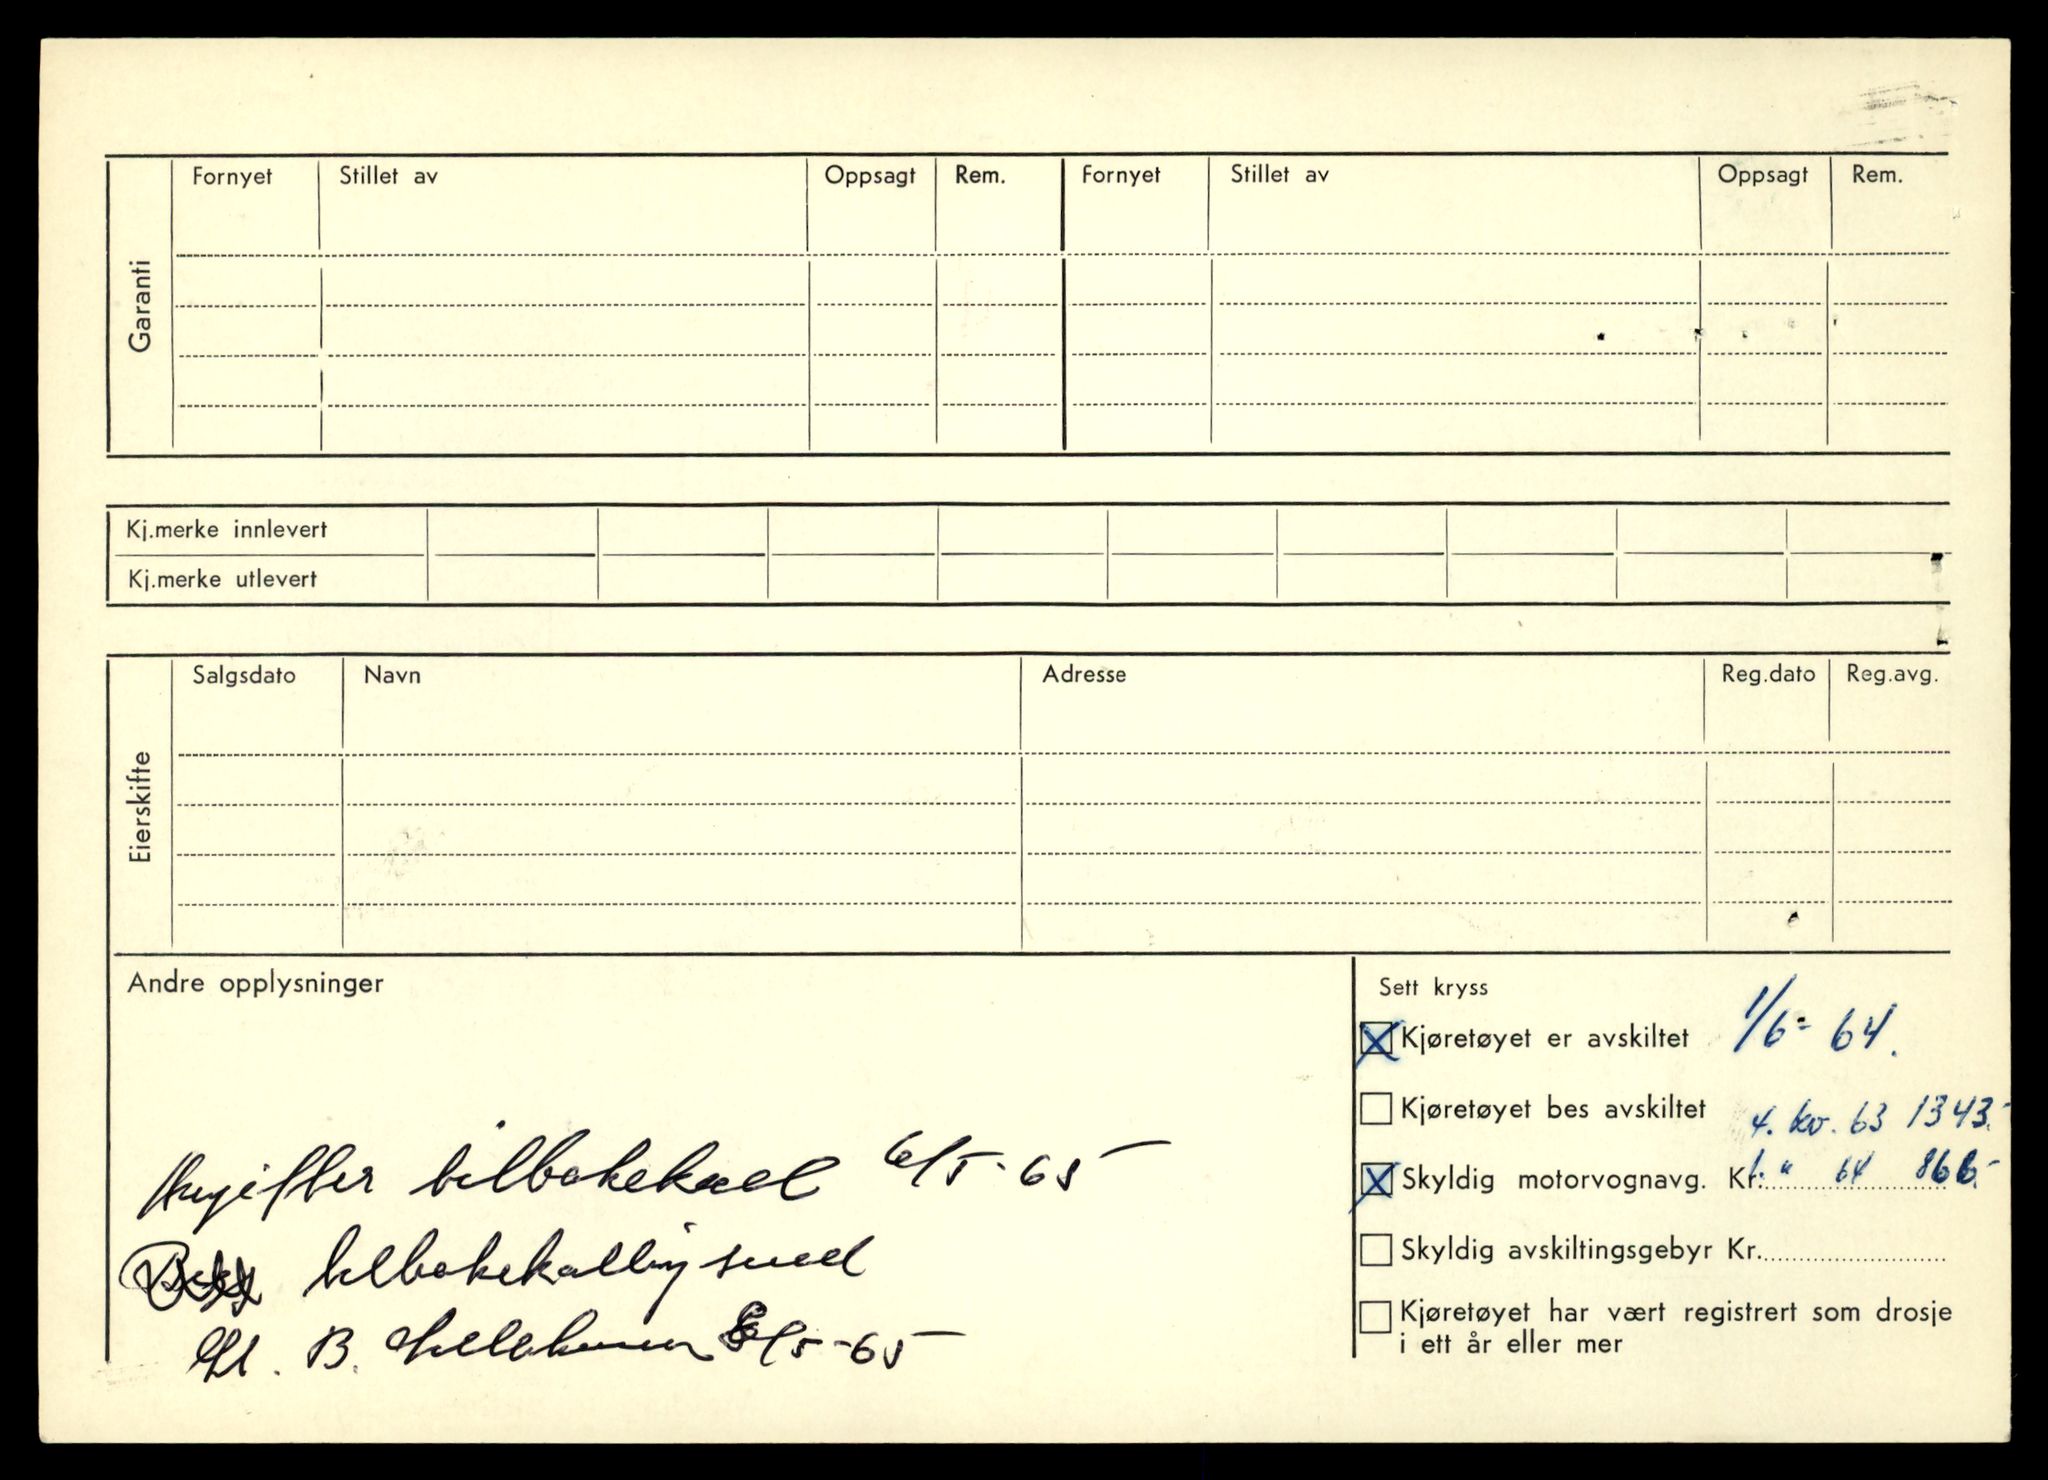 Garanti
Fornyet Stillet av Oppsagt Rem. Fornyet Stillet av Oppsagt Rem.
Kj.merke innlevert
Kj.merke utlevert
Eierskifte
Salgsdato Navn Adresse Reg.dato Reg.avg.
Andre opplysninger
6/5-65
5/5-65
Sett kryss
Kjøretøyet er avskiltet 1/6-64.
Kjøretøyet bes avskiltet 4. kv. 63 1343.-
Skyldig motorvognavg. Kr. 1. " 64 866.-
Skyldig avskiltingsgebyr Kr.
Kjøretøyet har vært registrert som drosje
i ett år eller mer